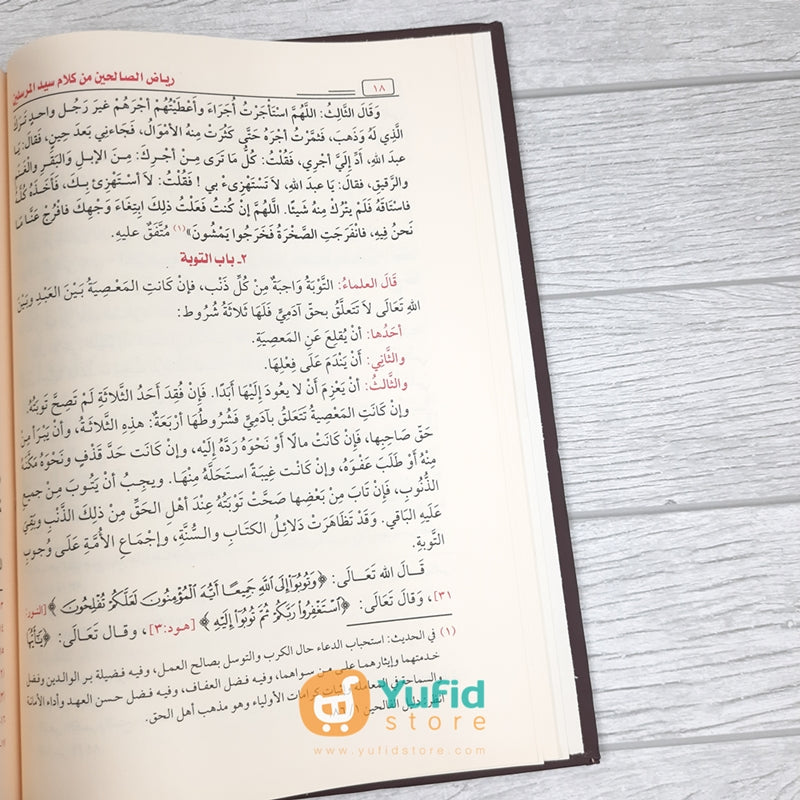 ١٨
رياض الصالحين من كلام سيد المرسلين
وَقَالَ الثَّالِثُ: اللَّهُمَّ اسْتَأْجَرْتُ أُجَرَاءَ وأَعْطَيْتُهُمْ أَجْرَهُمْ غَيرَ رَجُلٍ واحِدٍ تَرَكَ
الَّذِي لَهُ وَذَهبَ، فَثَمَّرْتُ أَجْرَهُ حَتَّى كَثُرَتْ مِنهُ الأمْوَالُ، فَجَاءنِي بَعدَ حِينٍ، فَقالَ: يَا
عبدَ اللهِ، أَدِّ إِلَيَّ أجْرِي، فَقُلْتُ: كُلُّ مَا تَرَى مِنْ أجْرِكَ: مِنَ الإبلِ وَالبَقَرِ والْغَنَمِ
والرَّقيقِ، فقالَ: يَا عبدَ اللهِ، لَا تَسْتَهْزِىءْ بي! فَقُلْتُ: لَا أسْتَهْزِئ بِكَ، فَأَخَذَهُ كُلَّهُ
فاسْتَاقَهُ فَلَمْ يتْرُكْ مِنهُ شَيئًا. اللَّهُمَّ إنْ كُنتُ فَعَلْتُ ذلِكَ ابتِغَاءَ وَجْهِكَ فافْرُجْ عَنَّا مَا
نَحنُ فِيهِ، فانْفَرَجَتِ الصَّخْرَةُ فَخَرَجُوا يَمْشُونَ»(١) مُتَّفَقٌ عليهِ.
٢ـ باب التوبة
قَالَ العلماءُ: التَّوْبَةُ وَاجبَةٌ مِنْ كُلِّ ذَنْب، فإنْ كَانتِ المَعْصِيَةُ بَيْنَ العَبْدِ وبَيْنَ
اللهِ تَعَالَى لَا تَتَعلَّقُ بحقِّ آدَمِيٍّ فَلَهَا ثَلاثَةُ شُرُوط:
أحَدُها: أنْ يُقلِعَ عَنِ المَعصِيَةِ.
والثَّانِي: أَنْ يَنْدَمَ عَلَى فِعْلِهَا.
والثَّالثُ: أنْ يَعْزِمَ أَنْ لا يعُودَ إِلَيْهَا أَبَدًا. فَإِنْ فُقِدَ أَحَدُ الثَّلاثَةِ لَمْ تَصِحَّ تَوبَتُهُ.
وإنْ كَانَتِ المَعْصِيةُ تَتَعَلَّقُ بآدَمِيٍّ فَشُرُوطُهَا أرْبَعَةٌ: هذِهِ الثَّلاثَةُ، وأنْ يَبْرَأَ مِنْ
حَقِّ صَاحِبِها، فَإِنْ كَانَتْ مالًا أَوْ نَحْوَهُ رَدَّهُ إِلَيْه، وإنْ كانَت حَدَّ قَذْفٍ ونَحْوَهُ مَكَّنَهُ
مِنْهُ أَوْ طَلَبَ عَفْوَهُ، وإنْ كَانْت غِيبَةً استَحَلَّهُ مِنْهَا. ويجِبُ أنْ يَتُوبَ مِنْ جميعِ
الذُّنُوبِ، فَإِنْ تَابَ مِنْ بَعْضِها صَحَّتْ تَوْبَتُهُ عِنْدَ أهْلِ الحَقِّ مِنْ ذلِكَ الذَّنْبِ وبَقِيَ
عَلَيهِ البَاقي. وَقَدْ تَظَاهَرَتْ دَلائِلُ الكتَابِ والسُّنَّةِ، وإجْمَاعِ الأُمَّةِ عَلَى وُجوبِ
التَّوبةِ.
قَالَ الله تَعَالَى: ﴿وَتُوبُوٓا۟ إِلَى ٱللَّهِ جَمِيعًا أَيُّهَ ٱلْمُؤْمِنُونَ لَعَلَّكُمْ تُفْلِحُونَ﴾ [النور:
٣١]، وَقَالَ تَعَالَى: ﴿ٱسْتَغْفِرُوا۟ رَبَّكُمْ ثُمَّ تُوبُوٓا۟ إِلَيْهِ﴾ [هود: ٣]، وقال تَعَالَى: ﴿يَٰٓأَيُّهَا
(١) في الحديث: استحباب الدعاء حال الكرب والتوسل بصالح العمل، وفيه فضيلة بر الوالدين وفضل
خدمتهما وإيثارهما على من سواهما، وفيه فضل العفاف، وفيه فضل حسن العهد وأداء الأمانة
والسماحة في المعاملة وإثبات كرامات الأولياء وهو مذهب أهل الحق.
انظر: دليل الفالحين
Yufid
store
www.yufidstore.com